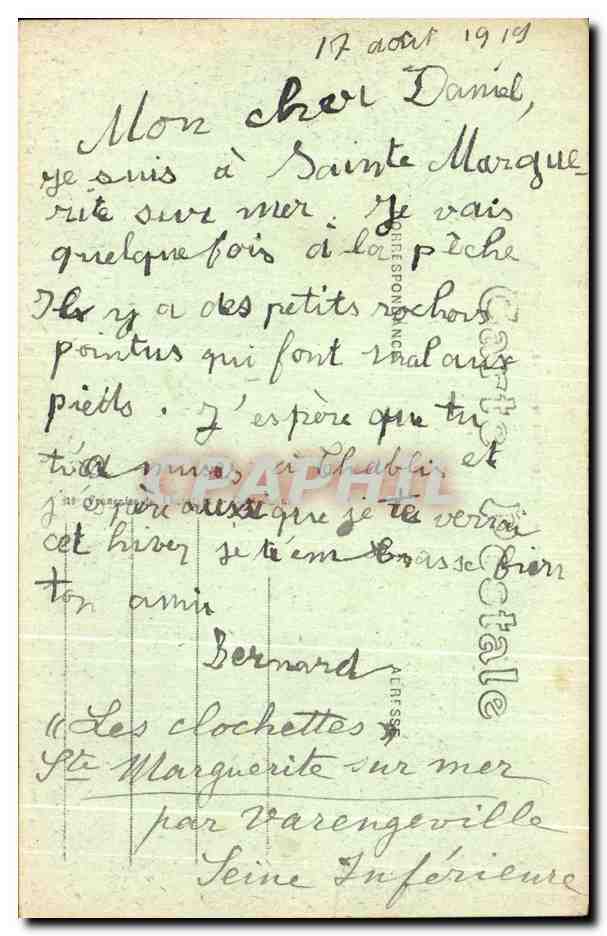 17 août 1919
Mon cher Daniel,
je suis à Sainte Margue-
rite sur mer. Je vais
quelquefois à la pêche
Il y a des petits rochers
pointus qui font mal aux
pieds. J'espère que tu
t'amuses à Chablis et
j'espère aussi que je te verrai
cet hiver je t'embrasse bien
ton ami
Bernard
"Les clochettes"
Ste Marguerite sur mer
par Varengeville
Seine Inférieure
Carte Postale
CORRESPONDANCE
ADRESSE
CPAPHIL